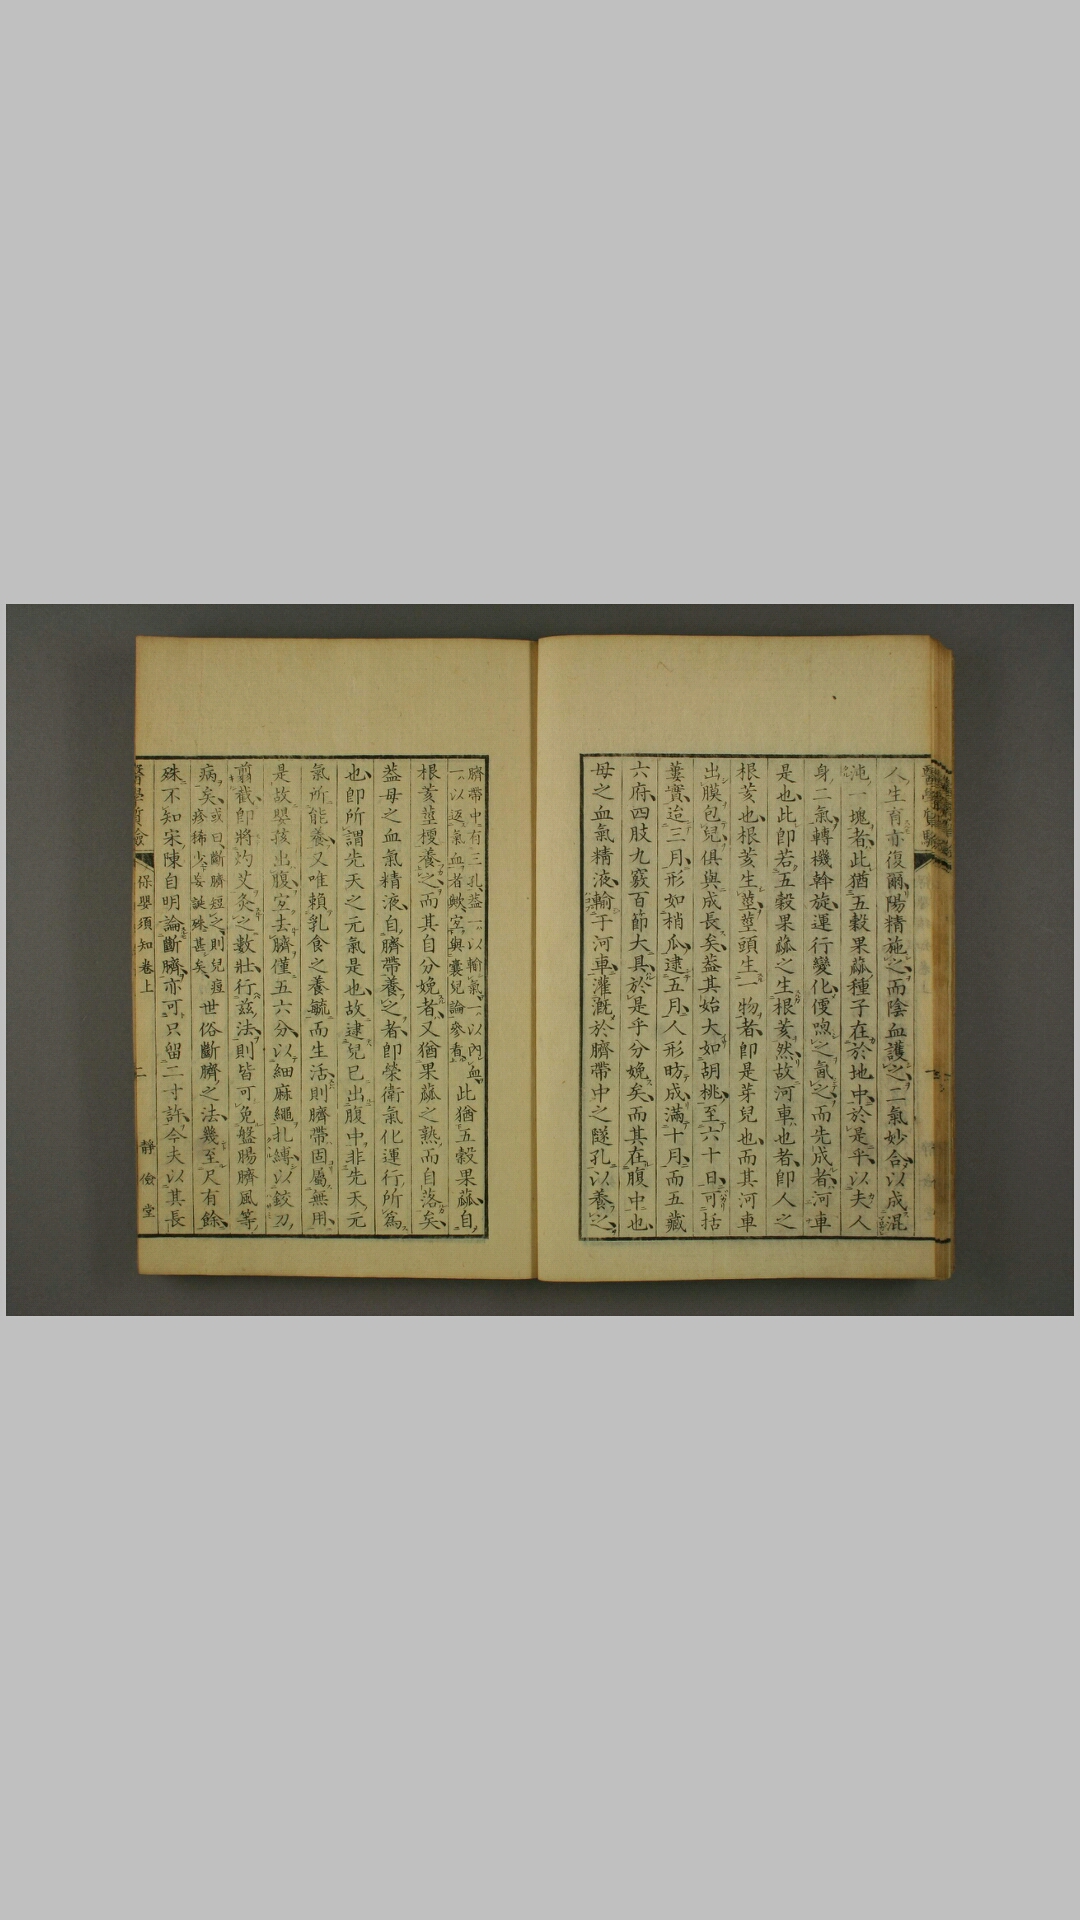 人生育亦復爾陽精施之而陰血護之二氣妙合以成混
沌一塊者此猶五穀果蓏種子在於地中於是乎以夫人
身二氣轉機斡旋運行變化優喣之氤之而先成者河車
是也此即若五穀果蓏之生根荄然故河車也者即人之
根荄也根荄生莖莖頭生一物者即是芽兒也而其河車
出膜包兒俱與成長矣蓋其始大如胡桃至六十日可括
蔞實迨三月形如梢瓜逮五月人形昉成滿十月而五藏
六府四肢九竅百節大具於是乎分娩矣而其在腹中也
母之血氣精液輸于河車灌漑於臍帶中之隧孔以養之
臍帶中有三孔蓋一以輸氣一以內血
一以返氣血者歟
與囊兒論參看
此猶五穀果蓏自
根荄莖稷養之而其自分娩者又猶果蓏之熟而自落矣
蓋母之血氣精液自臍帶養之者即榮衛氣化運行所爲
也即所謂先天之元氣是也故逮兒已出腹中非先天元
氣所能養又唯賴乳食之養毓而生活則臍帶固屬無用
是故嬰孩出腹室去臍僅五六分以細麻繩扎縛以鉸刀
翦截即將灼艾灸之數壯行茲法則皆可免盤腸臍風等
病矣
或曰斷臍短之則兒痘
疹稀少妄誕殊甚矣
世俗斷臍之法幾至尺有餘
殊不知宋陳自明論斷臍亦可只留二寸許今夫以其長
醫學質驗
保嬰須知卷上
二
靜儉堂